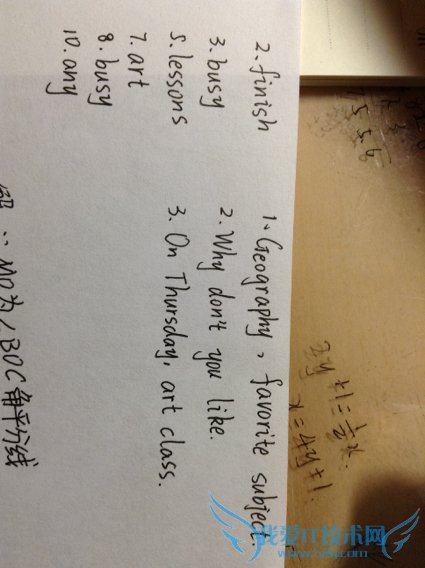 2. finish
3. busy
5. lessons
7. art
8. busy
10. any
1. Geography, favorite subject.
2. Why don't you like.
3. On Thursday, art class.
∵ MO为∠BOC角平分线
2y+1=½x.
x=4y+1.
我爱IT技术网